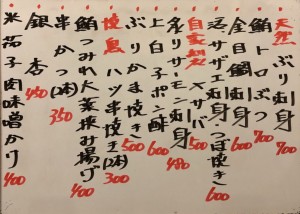 天然 ぶり刺身 700
鮪トロぶつ 700
金目鯛刺身 600
活サザエ刺身・つぼ焼き 600
自家製 〆サバ 500
炙りサーモン刺身 480
上白子ポン酢 600
ぶりかま焼き 500
焼鳥 ハツ串焼き(2本) 300
鮪つみれ大葉挟み揚げ 400
串かつ(2本) 350
銀杏 450
米茄子肉味噌かけ 400